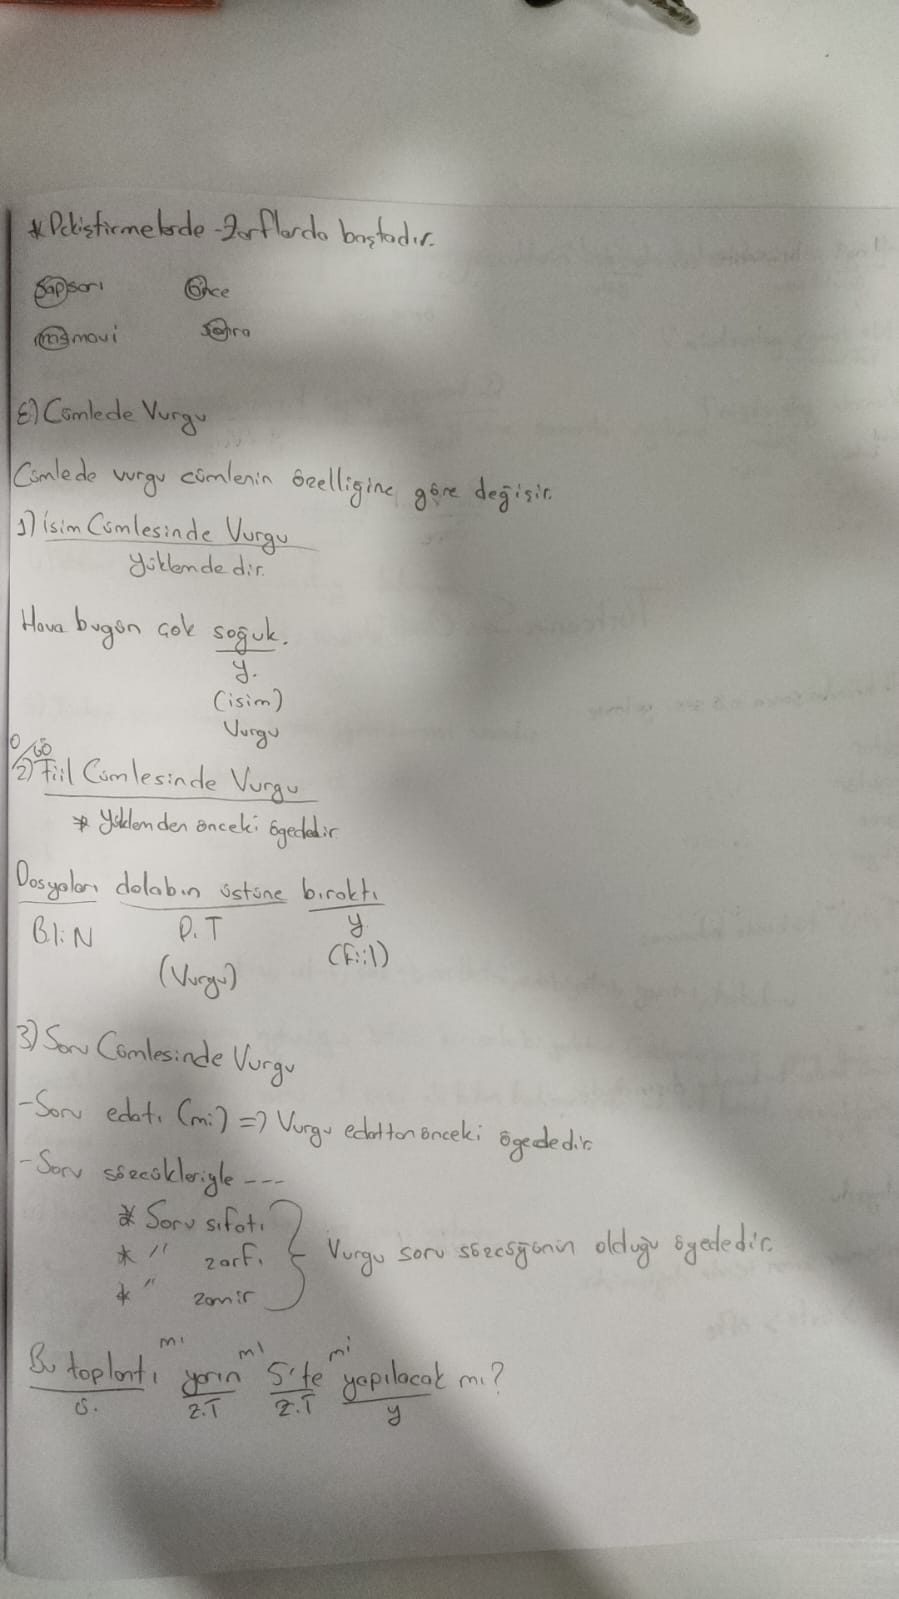 * Pekiştirmelerde - Zarflarda baştadır.
sapsarı önce
masmavi sonra
E) Cümlede Vurgu
Cümlede vurgu cümlenin özelliğine göre değişir.
1) İsim Cümlesinde Vurgu
Yüklemdedir.
Hava bugün çok soğuk.
y.
(isim)
Vurgu
2) Fiil Cümlesinde Vurgu
* Yüklemden önceki ögededir
Dosyaları dolabın üstüne bıraktı
B.li N D.T y
(Vurgu) (Fiil)
3) Soru Cümlesinde Vurgu
- Soru edatı (mi) => Vurgu edattan önceki ögededir.
- Soru sözcükleriyle ---
* Soru sıfatı
* " zarfı } Vurgu soru sözcüğünün olduğu ögededir.
* " zamir
mı mı mi
Bu toplantı yarın 5'te yapılacak mı?
ö. Z.T Z.T y